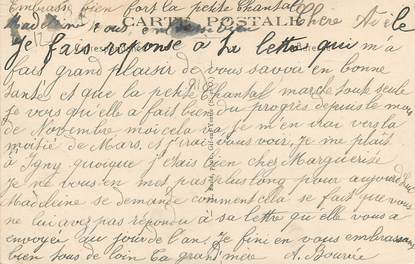 Embrasse bien fort la petite Chantal
CARTE POSTALE
Madeleine vous embrasse bien
Chère Adèle
Je fais reponse à ta lettre qui m'a
fais grand plaisir de vous savoir en bonne
santé et que la petite Chantal marche toute seule
je vois qu'elle a fait bien du progrès depuis le mois
de Novembre moi cela va, je m'en irai vers la
moitié de Mars, et j'irai vous voir, je me plais
à Igny quoique j'etais bien chez Marguerite
je ne vous en met pas plus long pour aujourd'hui
Madeleine se demande comment cela se fait que vous
ne lui avez pas répondu à sa lettre qu'elle vous a
envoyer au jour de l'an. Je fini en vous embrassant
bien tous de loin ta grand'mère A. Bourrie